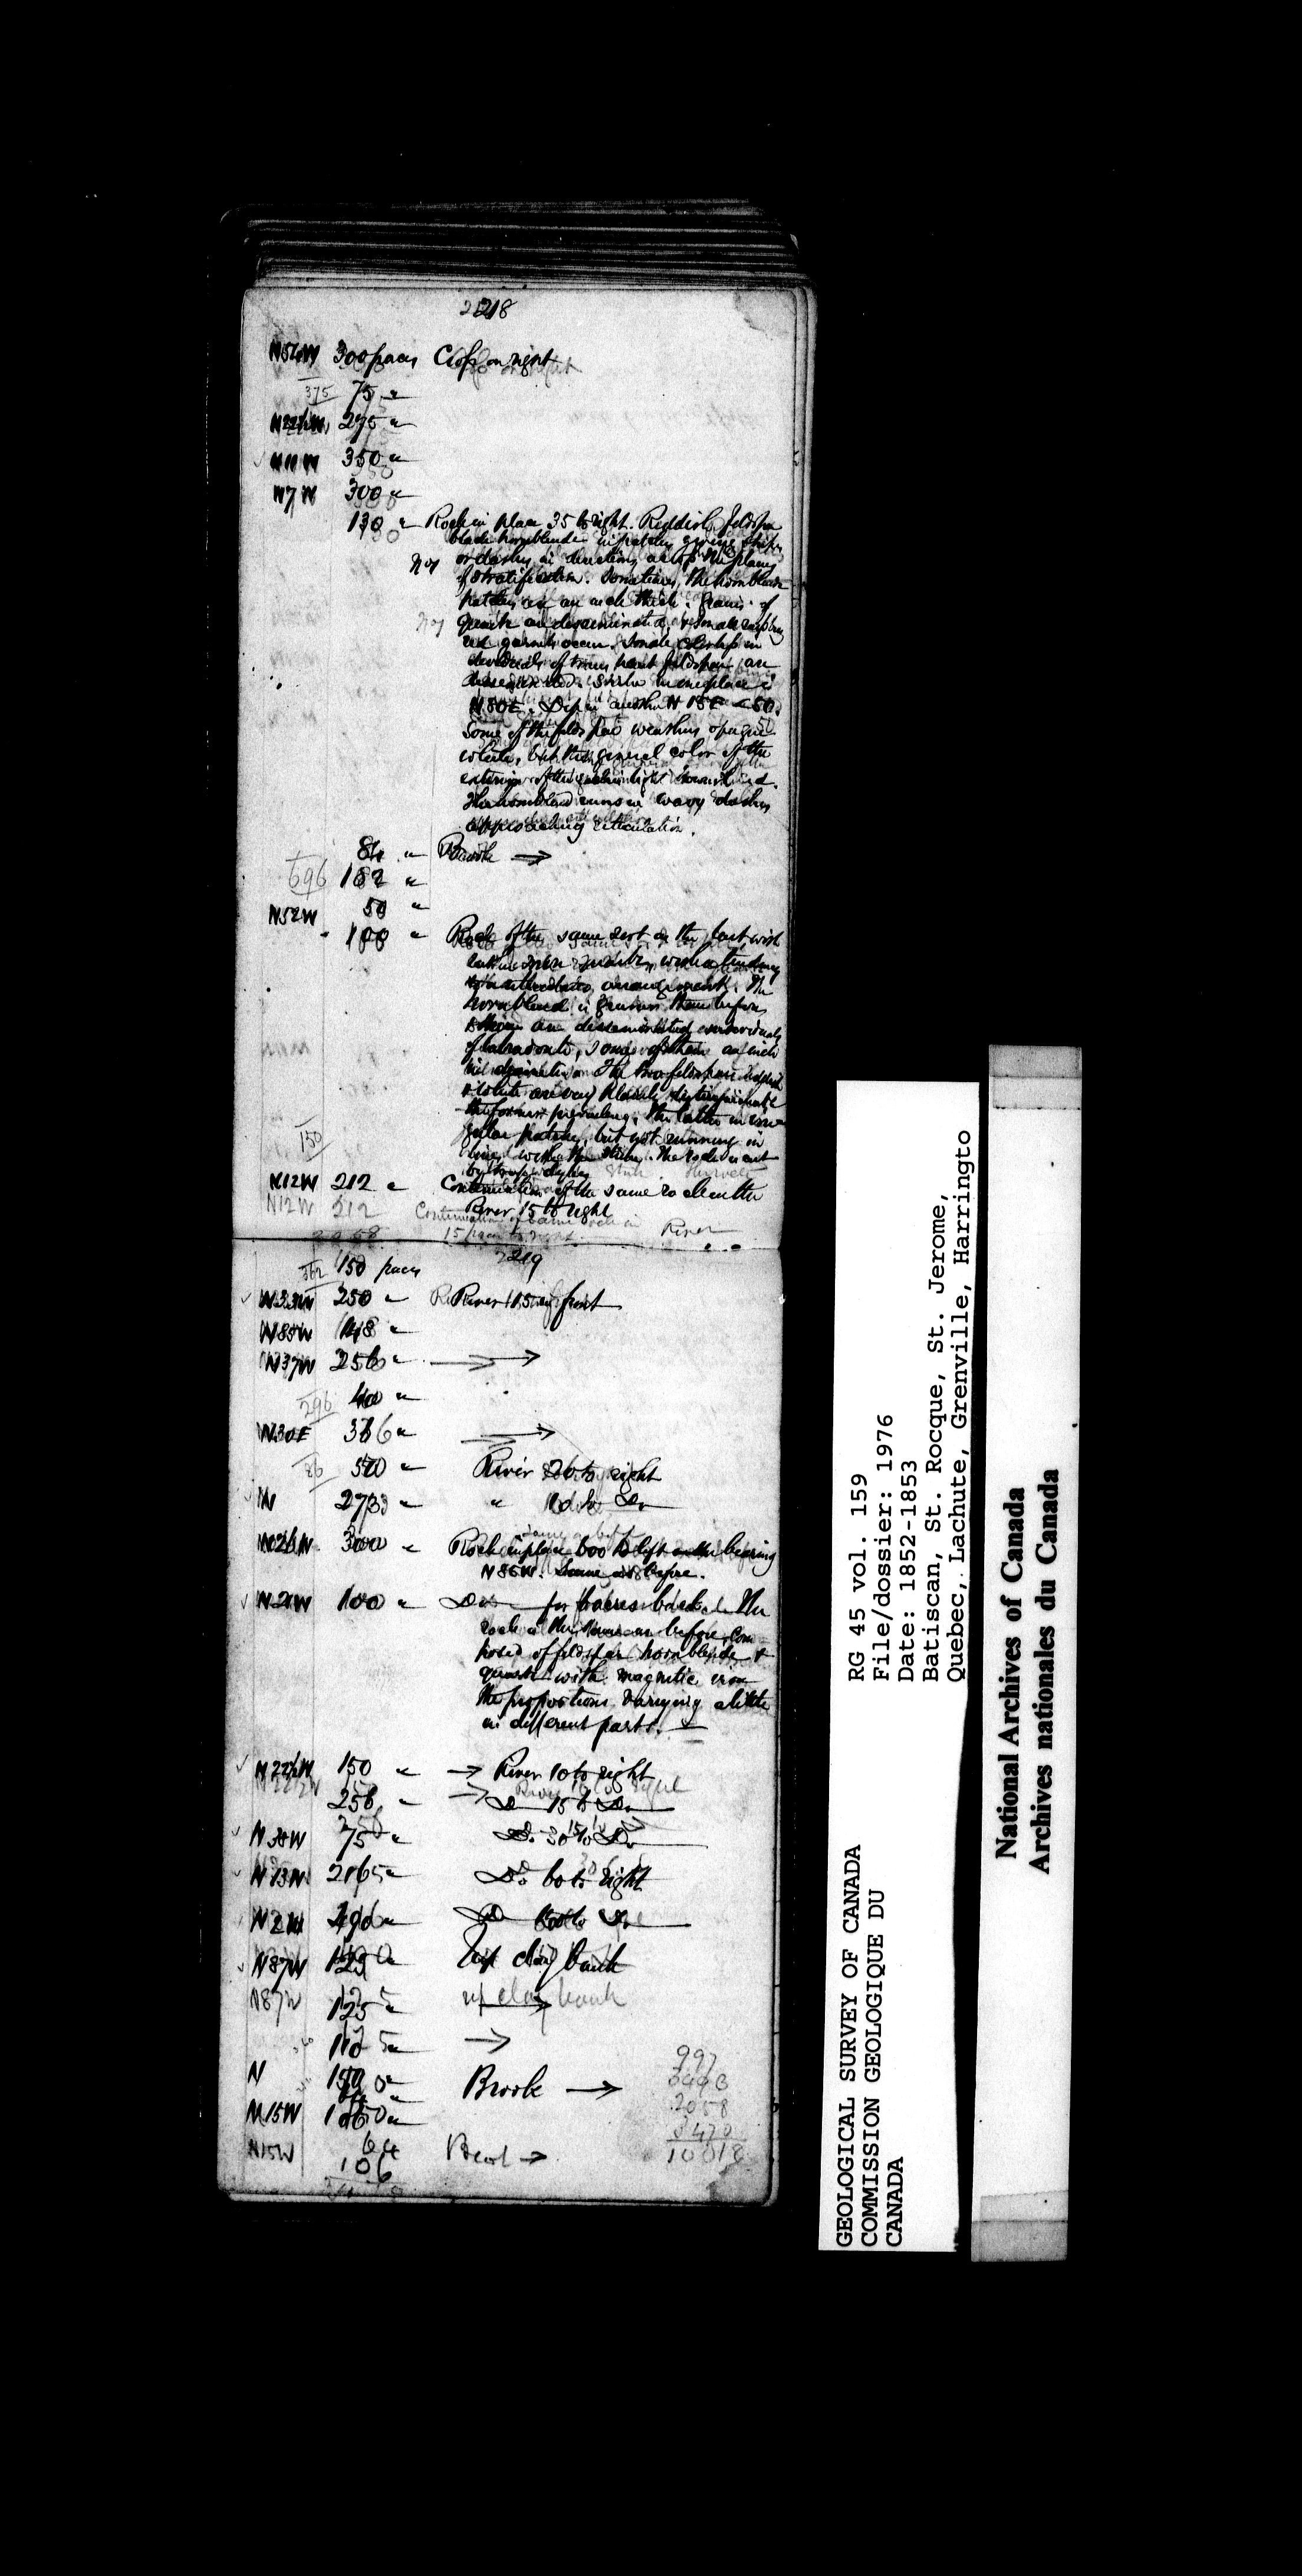 218
N56W 300 paces Crops on right
375 75 "
N22½W 275 "
N11W 350 "
N7W 300 "
130 " Rock in place 35 to right. Reddish feldspar
black hornblende in patches giving stripes
or dashes in directions along the planes
of stratification. Sometimes the hornblende
patches are an inch thick. Grains of
quartz are disseminated & small
red garnets occur. Some
of feldspar are
disseminated. Strike in one place is
N80E. Dip in another N 15E < 50.
Some of the feldspar weathers opaque
white, but the general color of the
exterior of the rock is light brownish red.
The hornblende runs in wavy dashes
approaching reticulation.
84 " Brook →
696 182 "
N52W 50 "
188 " Rock of the same sort as the last with
with a tendency
to a reticulated arrangement. The
hornblende is than before
are disseminated
of labradorite, some of them an inch
in diameter. The two feldspars reddish
& white are very plainly distinguishable
the former prevailing, the latter in irre-
gular patches, but not running in
lines with the strike. The rock is cut
by trap dykes
150
N12W 212 " Continuation of the same rock in the
River 15 to right
N12W 212 Continuation of same rock in River
15 paces to right
219
362 150 paces
N33W 250 " River 15 in front
N85W 148 "
N37W 256 " →
296 40 "
N30E 36 " →
86 50 " River 20 to right
N 273 " " 10 to Do
N26W 300 " Rock in place 600 to left bearing
N86W. Same as before.
N21W 100 " Do for paces back. The
rock is the same as before, com-
posed of feldspar hornblende &
quartz with magnetic iron
the proportions varying a little
in different parts.
N22½W 150 " → River 10 to right
256 " → Do 15 to Do
N38W 75 " Do 30 to Do
N13W 265 " Do 60 to right
N2W 296 " Do
N87W 125 " Up clay bank
N87W 125 " up clay bank
175 " →
N 150 "
64 " Brook →
N15W 106 "
64
N15W 106 Brook →
997
3493
2058
3470
10018
GEOLOGICAL SURVEY OF CANADA
COMMISSION GEOLOGIQUE DU
CANADA
RG 45 vol. 159
File/dossier: 1976
Date: 1852-1853
Batiscan, St. Rocque, St. Jerome,
Quebec, Lachute, Grenville, Harringto
National Archives of Canada
Archives nationales du Canada